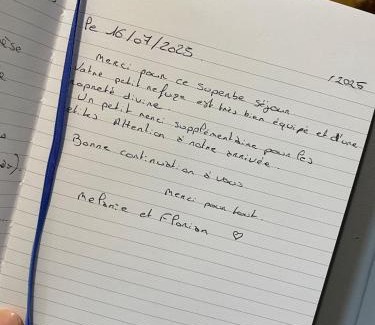 Le 16/07/2025
/2025
Merci pour ce superbe séjour
Votre petit refuge est très bien équipé et d'une
propreté divine.
Un petit merci supplémentaire pour les
petites Attention à notre arrivée.
Bonne continuation à vous
Merci pour tout
Melanie et Florian ♡